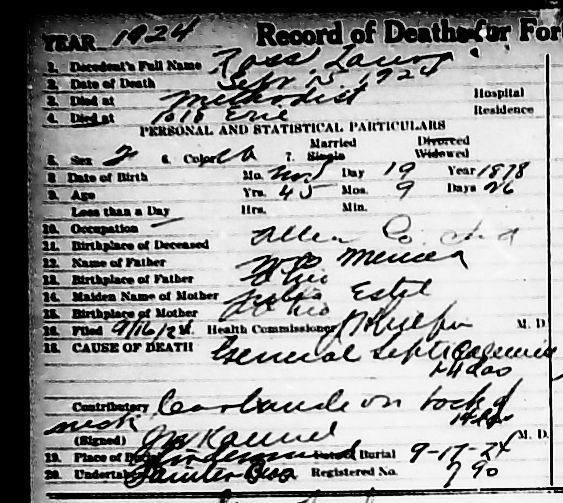 YEAR 1924 Record of Deaths for Fort
1. Decedent's Full Name Ross Laura
2. Date of Death Sept 15 1924
3. Died at Methodist Hospital
4. Died at 1018 Erie Residence
PERSONAL AND STATISTICAL PARTICULARS
Married Divorced
5. Sex F 6. Color W 7. Single Widowed
8. Date of Birth Mo. Nov Day 19 Year 1878
9. Age Yrs. 45 Mos. 9 Days 26
Less than a Day Hrs. Min.
10. Occupation
11. Birthplace of Deceased Allen Co. Ind
12. Name of Father
13. Birthplace of Father Ohio
14. Maiden Name of Mother
15. Birthplace of Mother Ohio
16. Filed 9/16/24 Health Commissioner M. D.
18. CAUSE OF DEATH General Septicaemia
14 das
Contributory Carbuncle on back of
neck
(Signed) M. D.
19. Place of Burial Lindenwood Date of Burial 9-17-24
20. Undertaker Registered No. 790